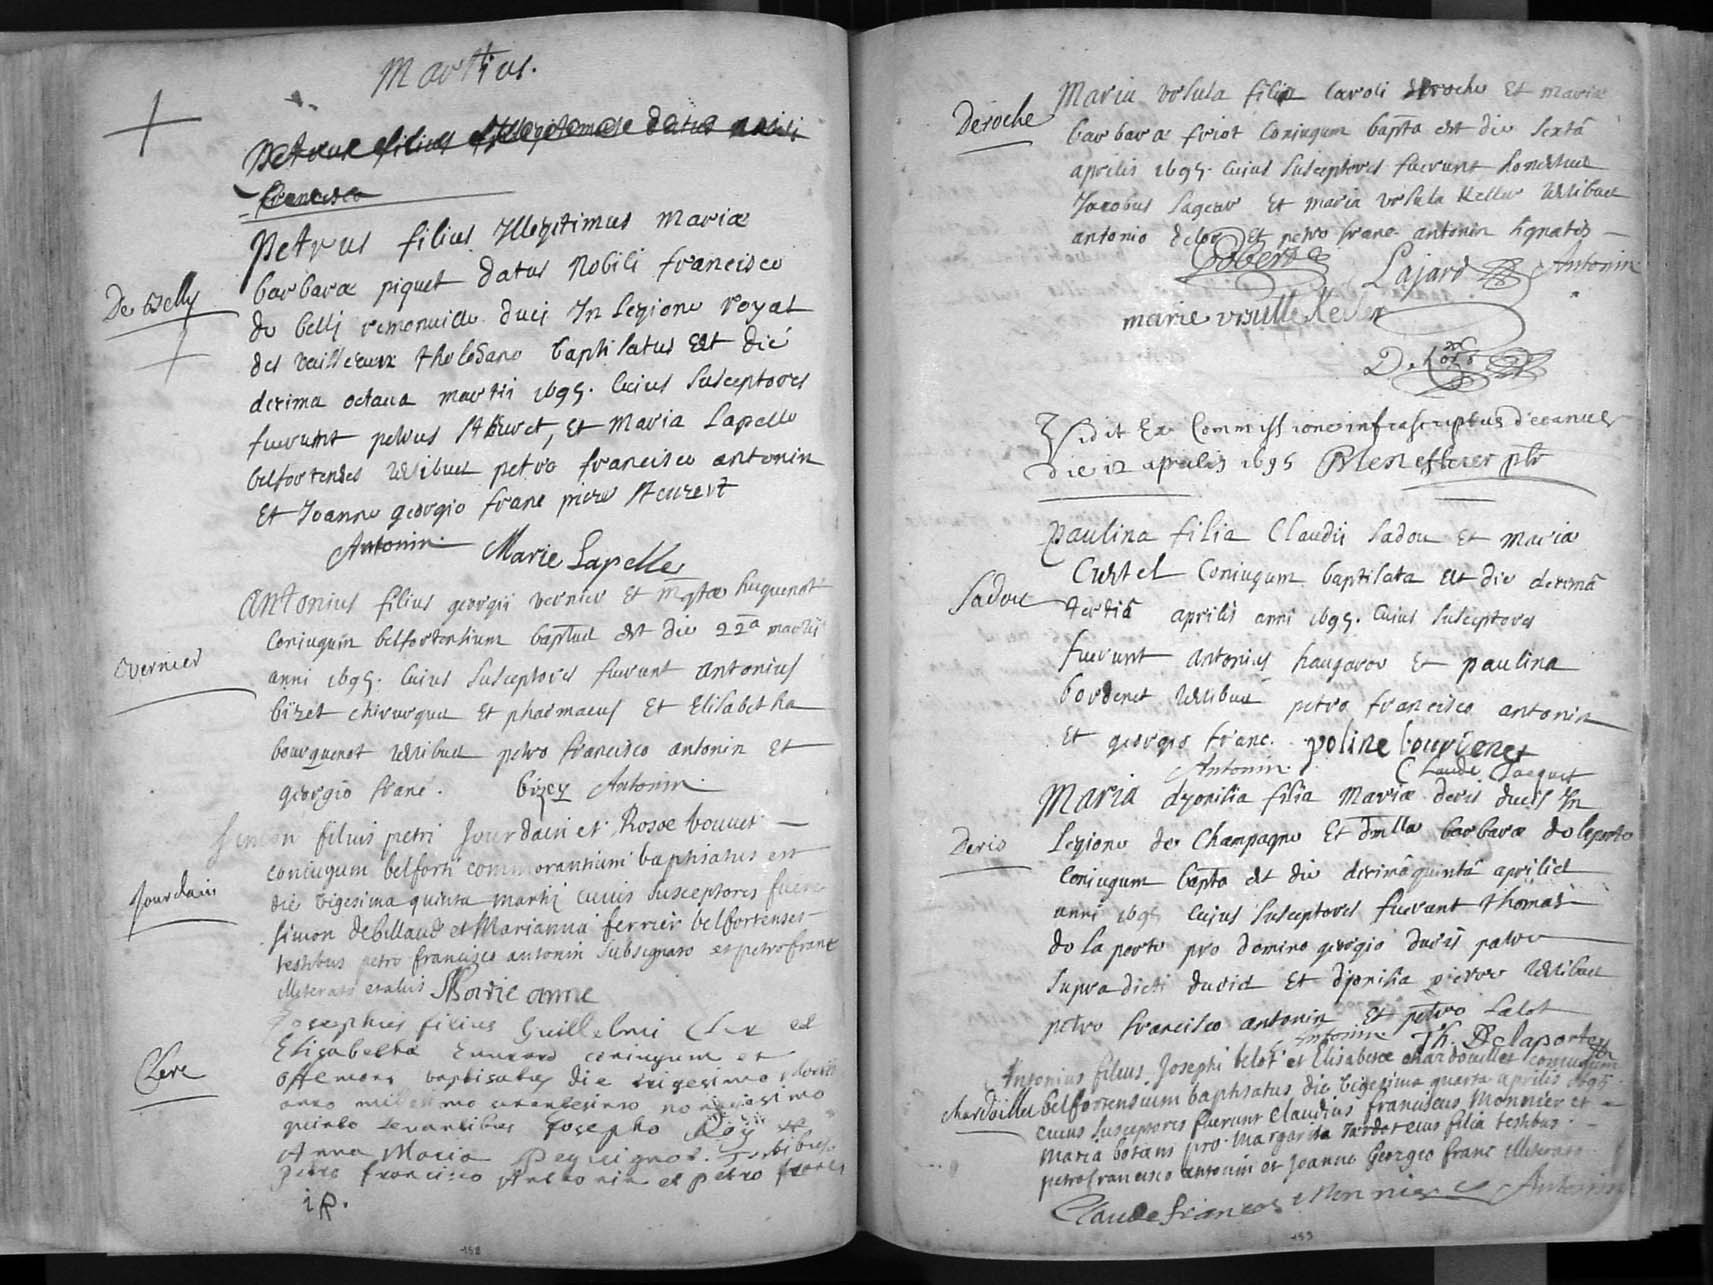 Martius.
Petrus filius Illegitimae datus nobili
francisco
Petrus filius Illegitimus Mariæ
De Belly
barbaræ piquet datus Nobili francisco
de belli remonuille duci In legione royal
des vaisseaux tholosano baptisatus Est die
decima octaua martii 1695. Cuius Susceptores
fuerunt petrus , Et Maria Lapelle
belfortenses testibus petro francisco antonin
Et Joanne georgio franc
Antonin. Marie Lapelle
Antonius filius georgii vernier Et huguenot
Coniugum belfortensium bap̄tus est die 22a martii
vernier
anni 1695. Cuius Susceptores fuerunt Antonius
bizet chirurgus Et pharmacus Et Elisabetha
bourquenot testibus petro francisco antonin Et
georgio franc. bizey Antonin.
Simon filius petri Jourdain et Rosæ bouuet
coniugum belforti commorantium baptisatus est
Jourdain
die vigesima quinta martij cuius susceptores fuere
simon debillaud et Marianna ferrier belfortenses
testibus petro francisco antonin subsignato et petro franc
illiterato Marie anne
Josephus filius Guillelmi Clere et
Elisabethæ coniugum
Clere
offemont baptisatus die trigesimo
anno millesimo nonagesimo
quinto Levantibus Josepho Roy et
Anna Maria Peguignot. Testibus
Petro francisco Antonin et petro franc
158
Maria vrsula filia Caroli deroche Et mariæ
Deroche
barbaræ friot Coniugum bap̄ta est die Sexta
aprilis 1695. Cuius Susceptores fuerunt
Jacobus Et maria vrsula Keller testibus
antonio delor Et petro franc antonin signatis
Antonin
marie vrsulle Keller
Vidit Ex Commissione infrascriptus decanus
die 12 aprilis 1695
paulina filia Claudii Sadou Et Maria
Curtel Coniugum baptisata Est die decimâ
Sadou
tertiâ aprilis anni 1695. Cuius Susceptores
fuerunt antonius Et paulina
bordenet testibus petro francisco antonin
Et georgio franc. poline bourdenet
Antonin. Claude Jaequet
Maria dyonisia filia Mariæ deris ducis In
Deris
Legione de Champagne Et barbaræ de laporte
Coniugum bap̄ta est die decimâquintâ aprilis
anni 1695 Cuius Susceptores fuerunt thomas
de la porte pro domino georgio patre
supra dicti Et dyonisia pierre testibus
petro francisco antonin Et petro Lalot
Antonin Th. Delaporte
Antonius filius Josephi belot et Elisabetæ chardouillet coniugum
chardoillet
belfortensium baptisatus die vigesima quarta aprilis 1695
cuius susceptores fuerunt Claudius franciscus Monnier et
Maria botans pro Margarita Tardot eius filia testibus
petro francisco antonin et Joanne Georgio franc illiterato
Claude françois Monnier Antonin
159